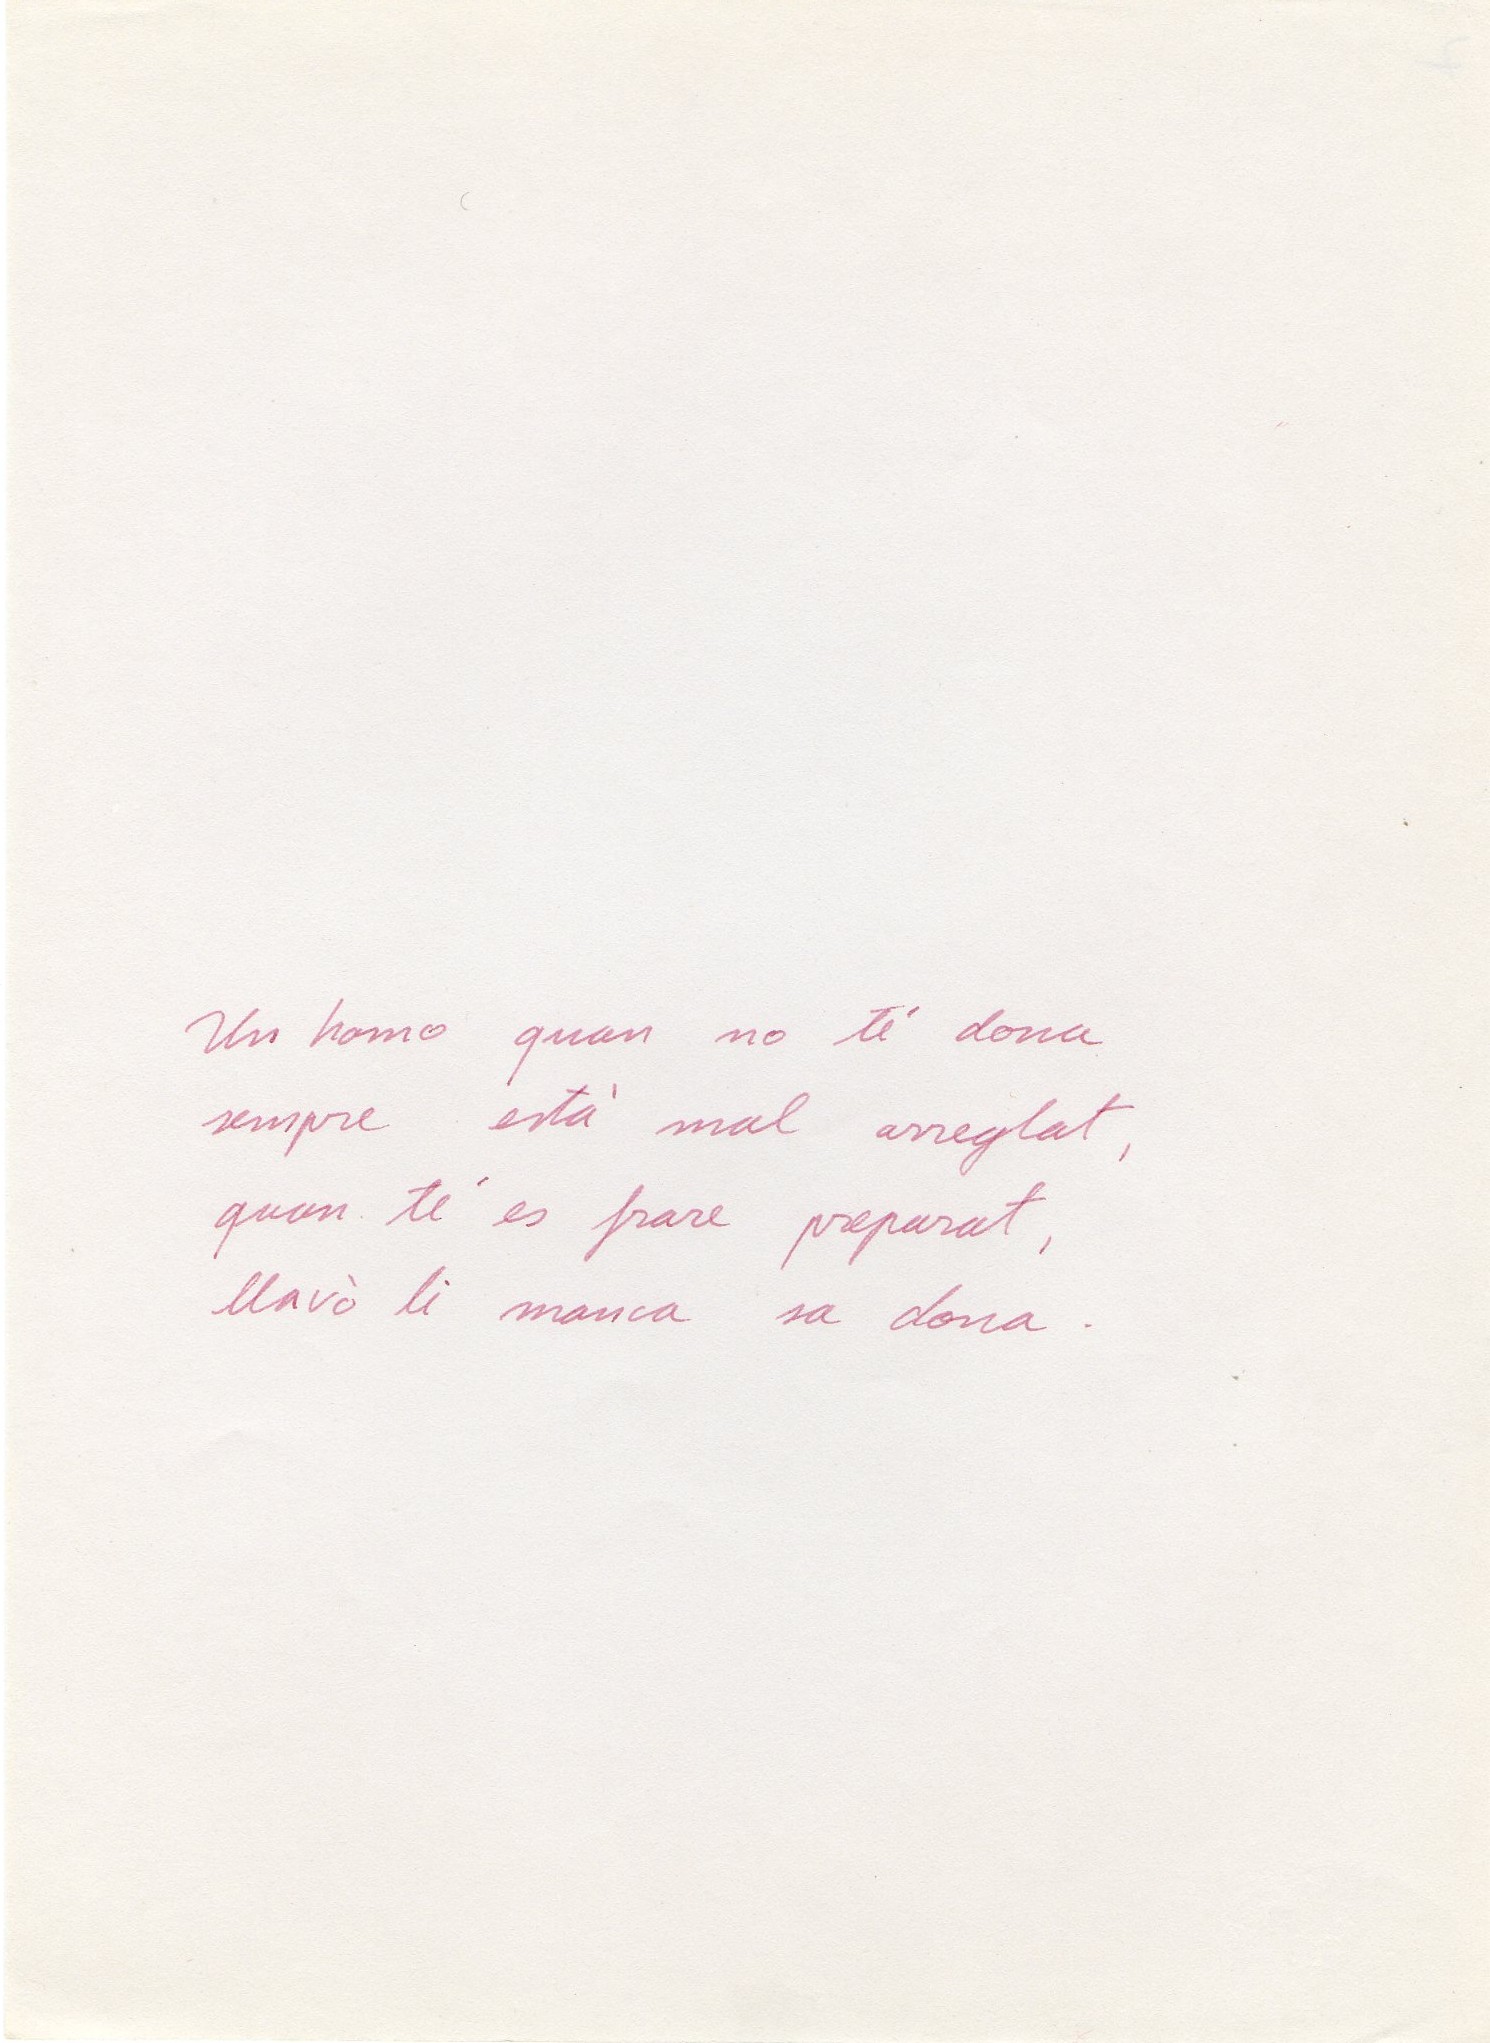 Un homo quan no té dona
sempre està mal arreglat,
quan té es frare preparat,
llavò li manca sa dona.